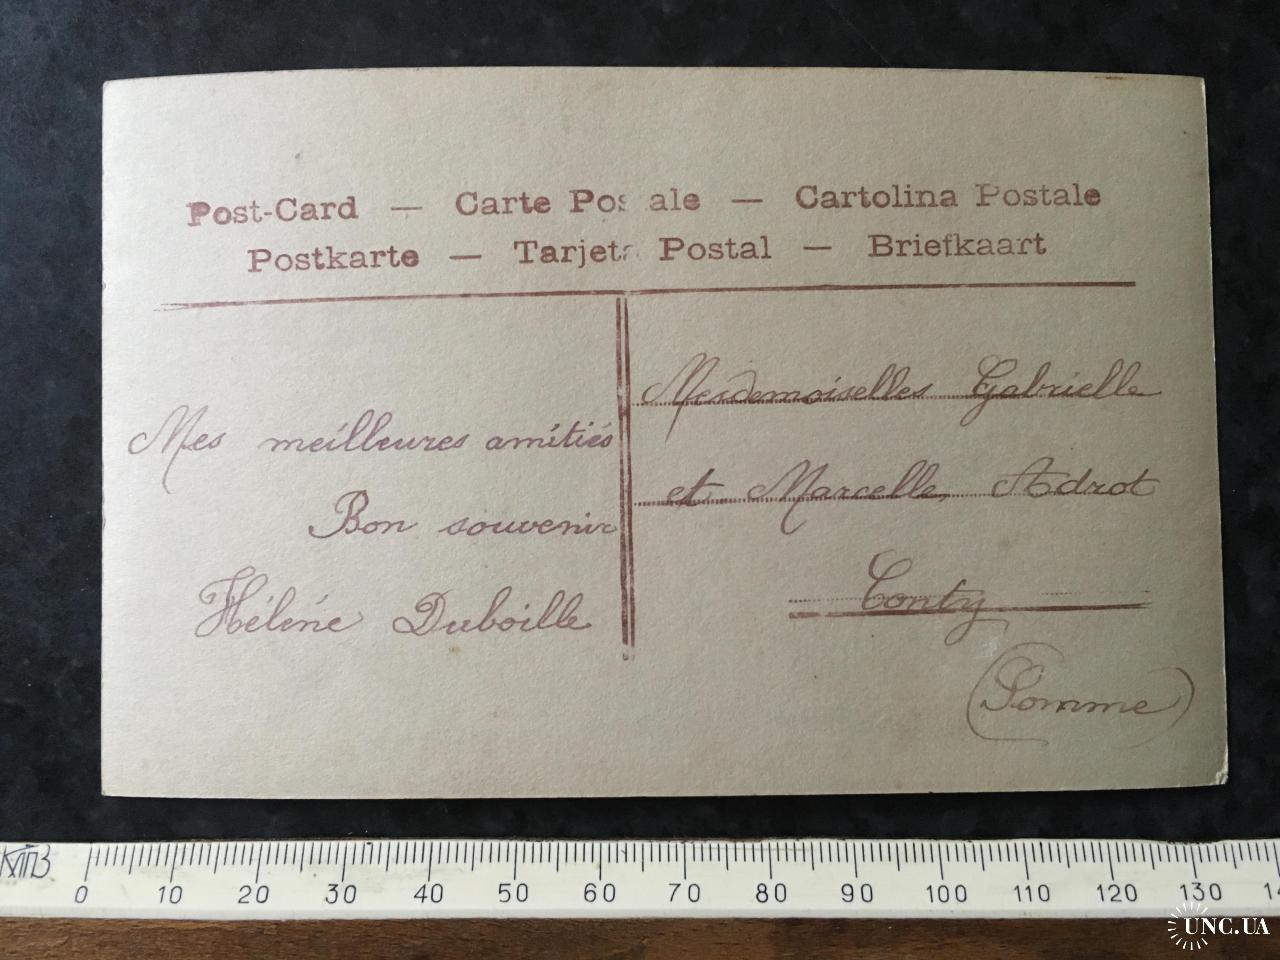 Post-Card — Carte Pos ale — Cartolina Postale
Postkarte — Tarjeta Postal — Briefkaart
Mes meilleures amitiés
Bon souvenir
Hélène Duboille
Mesdemoiselles Gabrielle
et Marcelle Adrot
Conty
(Somme)
0 10 20 30 40 50 60 70 80 90 100 110 120 130 14
UNC.UA